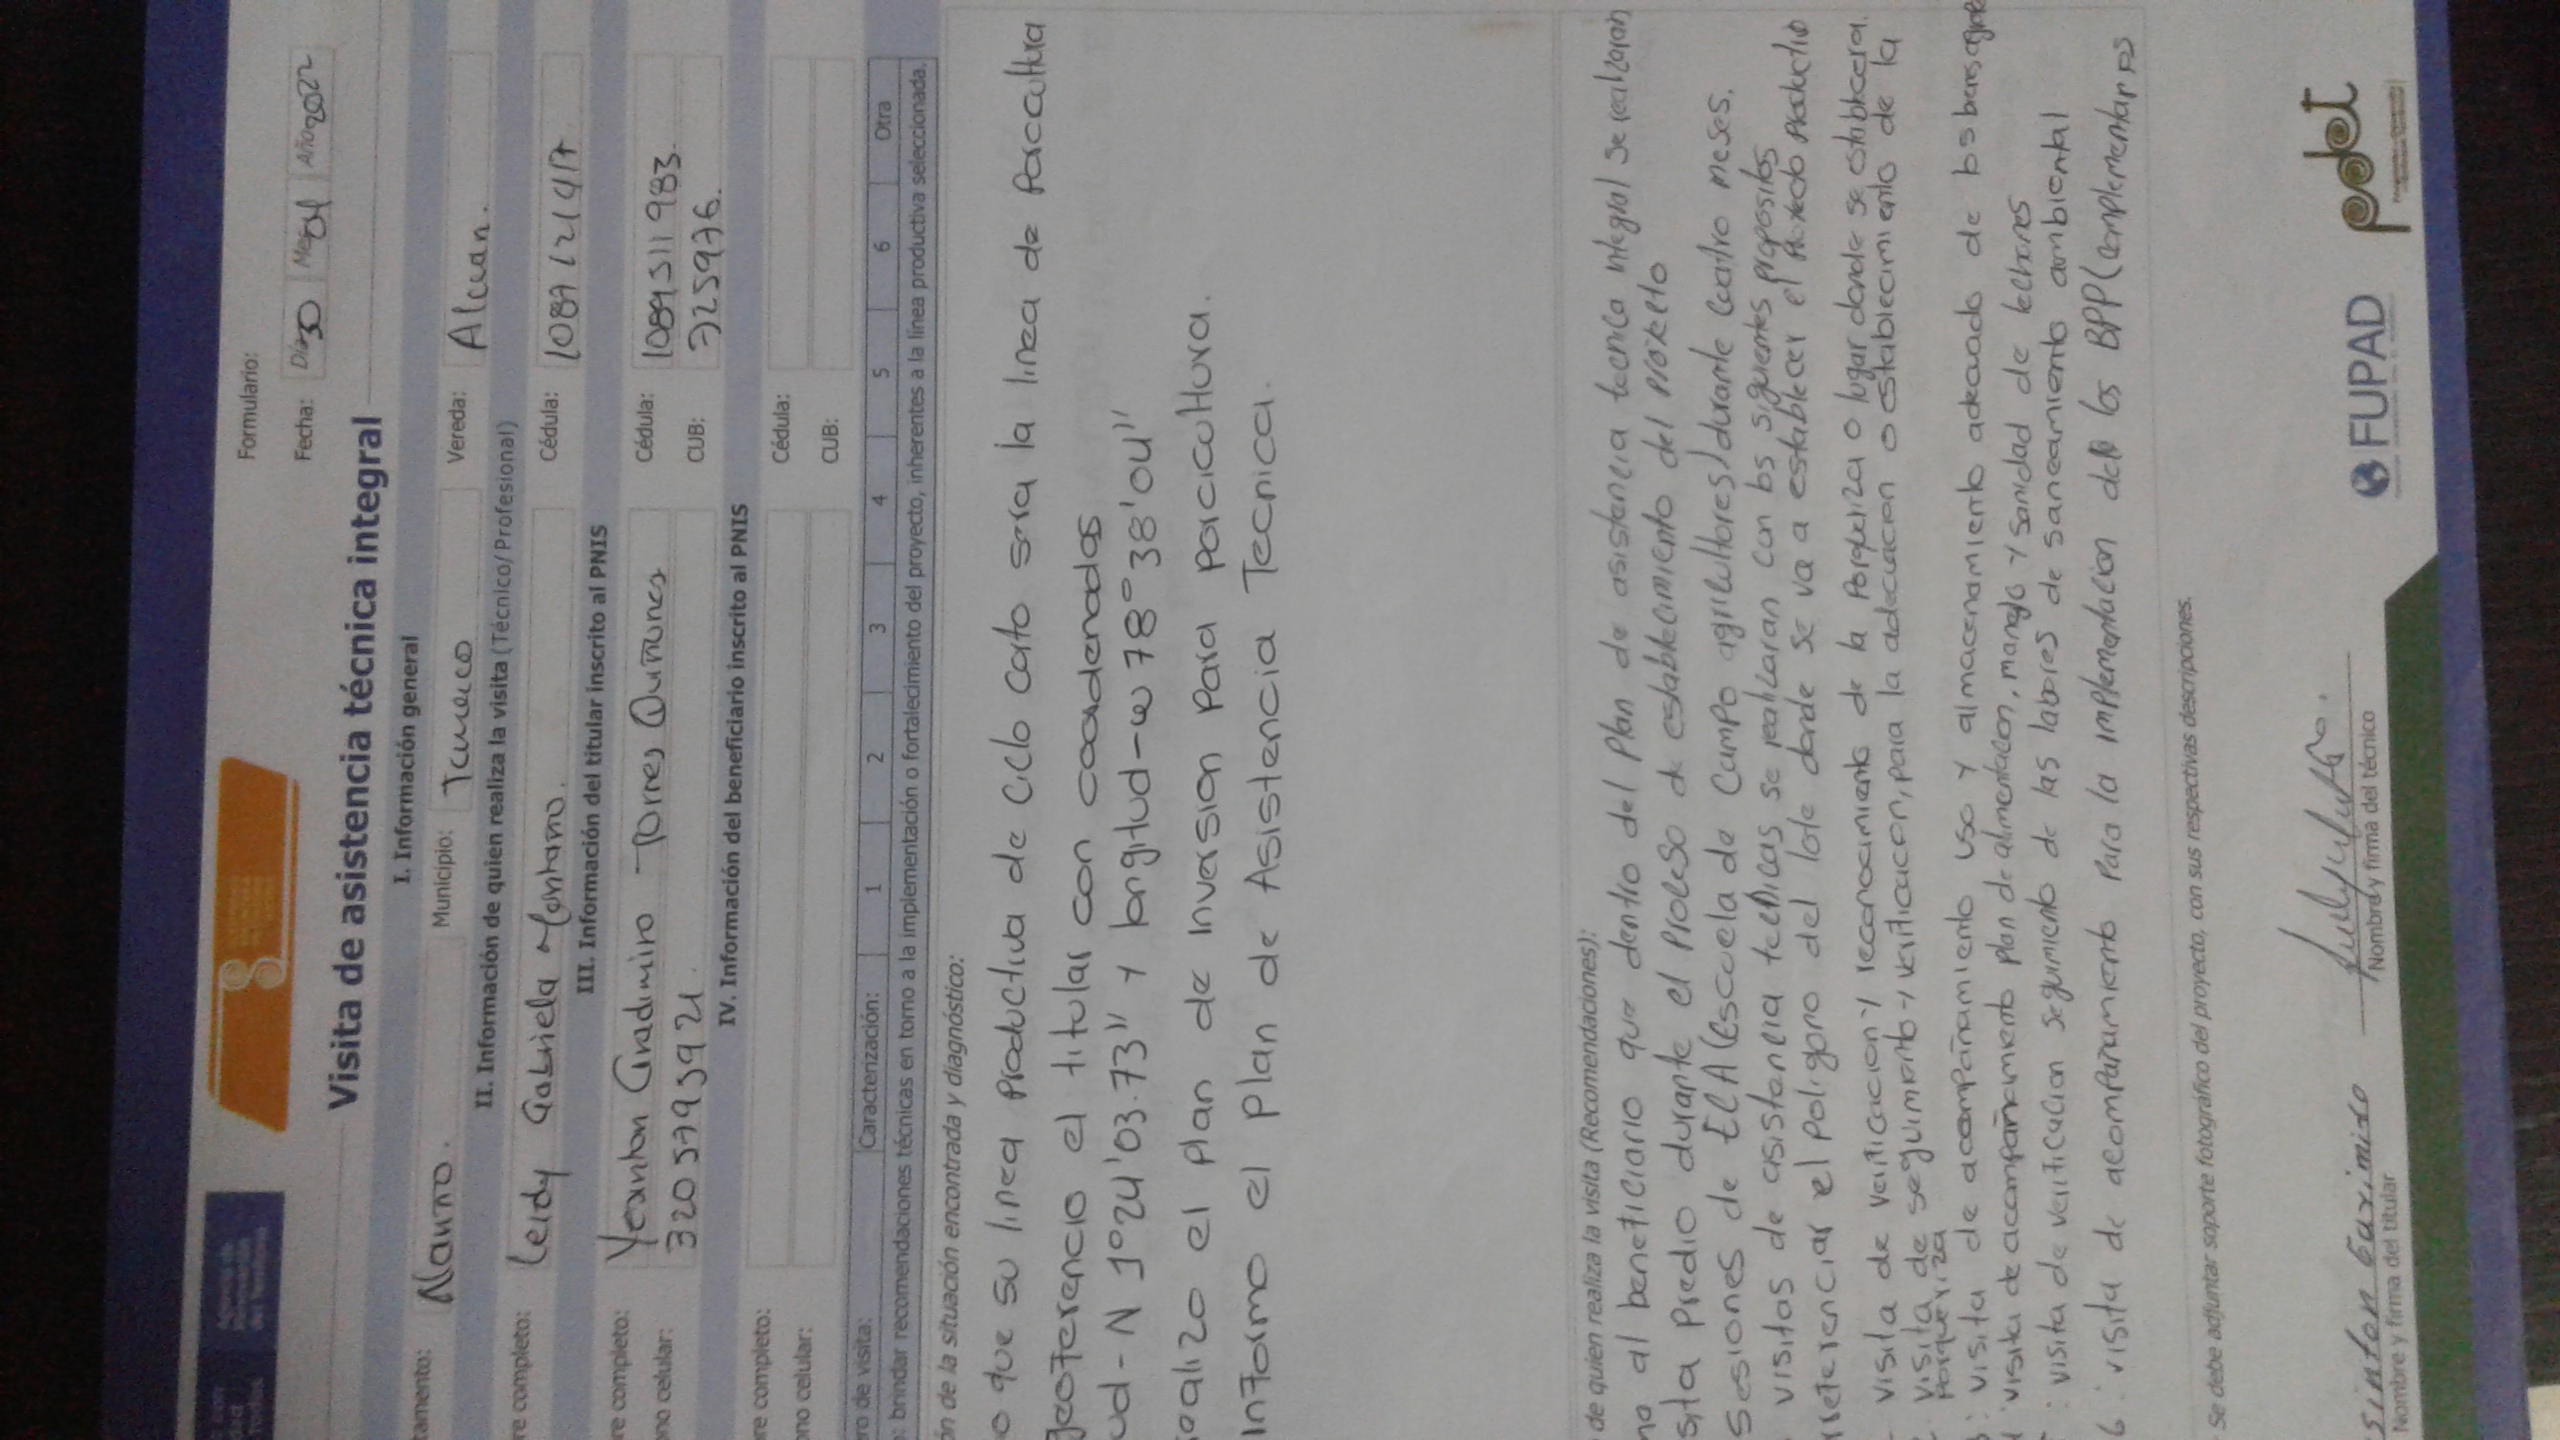 Formulario:
Fecha: Día 30 Mes 04 Año 2022
Visita de asistencia técnica integral
I. Información general
tamento: Nariño. Municipio: Tumaco Vereda: Alcuan.
II. Información de quien realiza la visita (Técnico/Profesional)
re completo: Leidy Gabriela Montaño. Cédula: 1087121417
III. Información del titular inscrito al PNIS
re completo: Torres Quiñones Cédula: 1089511983
no celular: 3205795921. CUB: 7259976.
IV. Información del beneficiario inscrito al PNIS
re completo: Cédula:
no celular: CUB:
ero de visita: Caracterización: 1 2 3 4 5 6 Otra
o: brindar recomendaciones técnicas en torno a la implementación o fortalecimiento del proyecto, inherentes a la línea productiva seleccionada.
ón de la situación encontrada y diagnóstico:
o que su linea productiva de ciclo corto sera la linea de Porcicultura
geoferencio el titular con coordenadas
ud-N 1°24'03.73" y longitud-w 78°38'04"
realizo el plan de inversion para porcicultura.
informo el Plan de Asistencia Tecnica.
de quien realiza la visita (Recomendaciones):
ma al beneficiario que dentro del Plan de asistencia tecnica integral se realizaran
sita predio durante el proceso de establecimiento del proyecto
sesiones de ECA (Escuela de Campo agricultores) durante cuatro meses.
visitas de asistencia tecnicas se realizaran con los siguientes propositos
rreferenciar el poligono del lote donde se va a establecer el Proyecto Productivo
visita de verificacion y reconocimiento de la Porqueriza o lugar donde se establecera.
visita de seguimiento y verificacion, para la adecuacion o establecimiento de la
Porqueriza
: visita de acompañamiento uso y almacenamiento adecuado de los
visita de acompañamiento plan de alimentacion, manejo y sanidad de lechones
: visita de verificacion seguimiento de las labores de saneamiento ambiental
6: visita de acompañamiento para la implementacion de los BPP (complementarios
Se debe adjuntar soporte fotográfico del proyecto, con sus respectivas descripciones.
Nombre y firma del titular
Nombre y firma del técnico
FUPAD
pdet